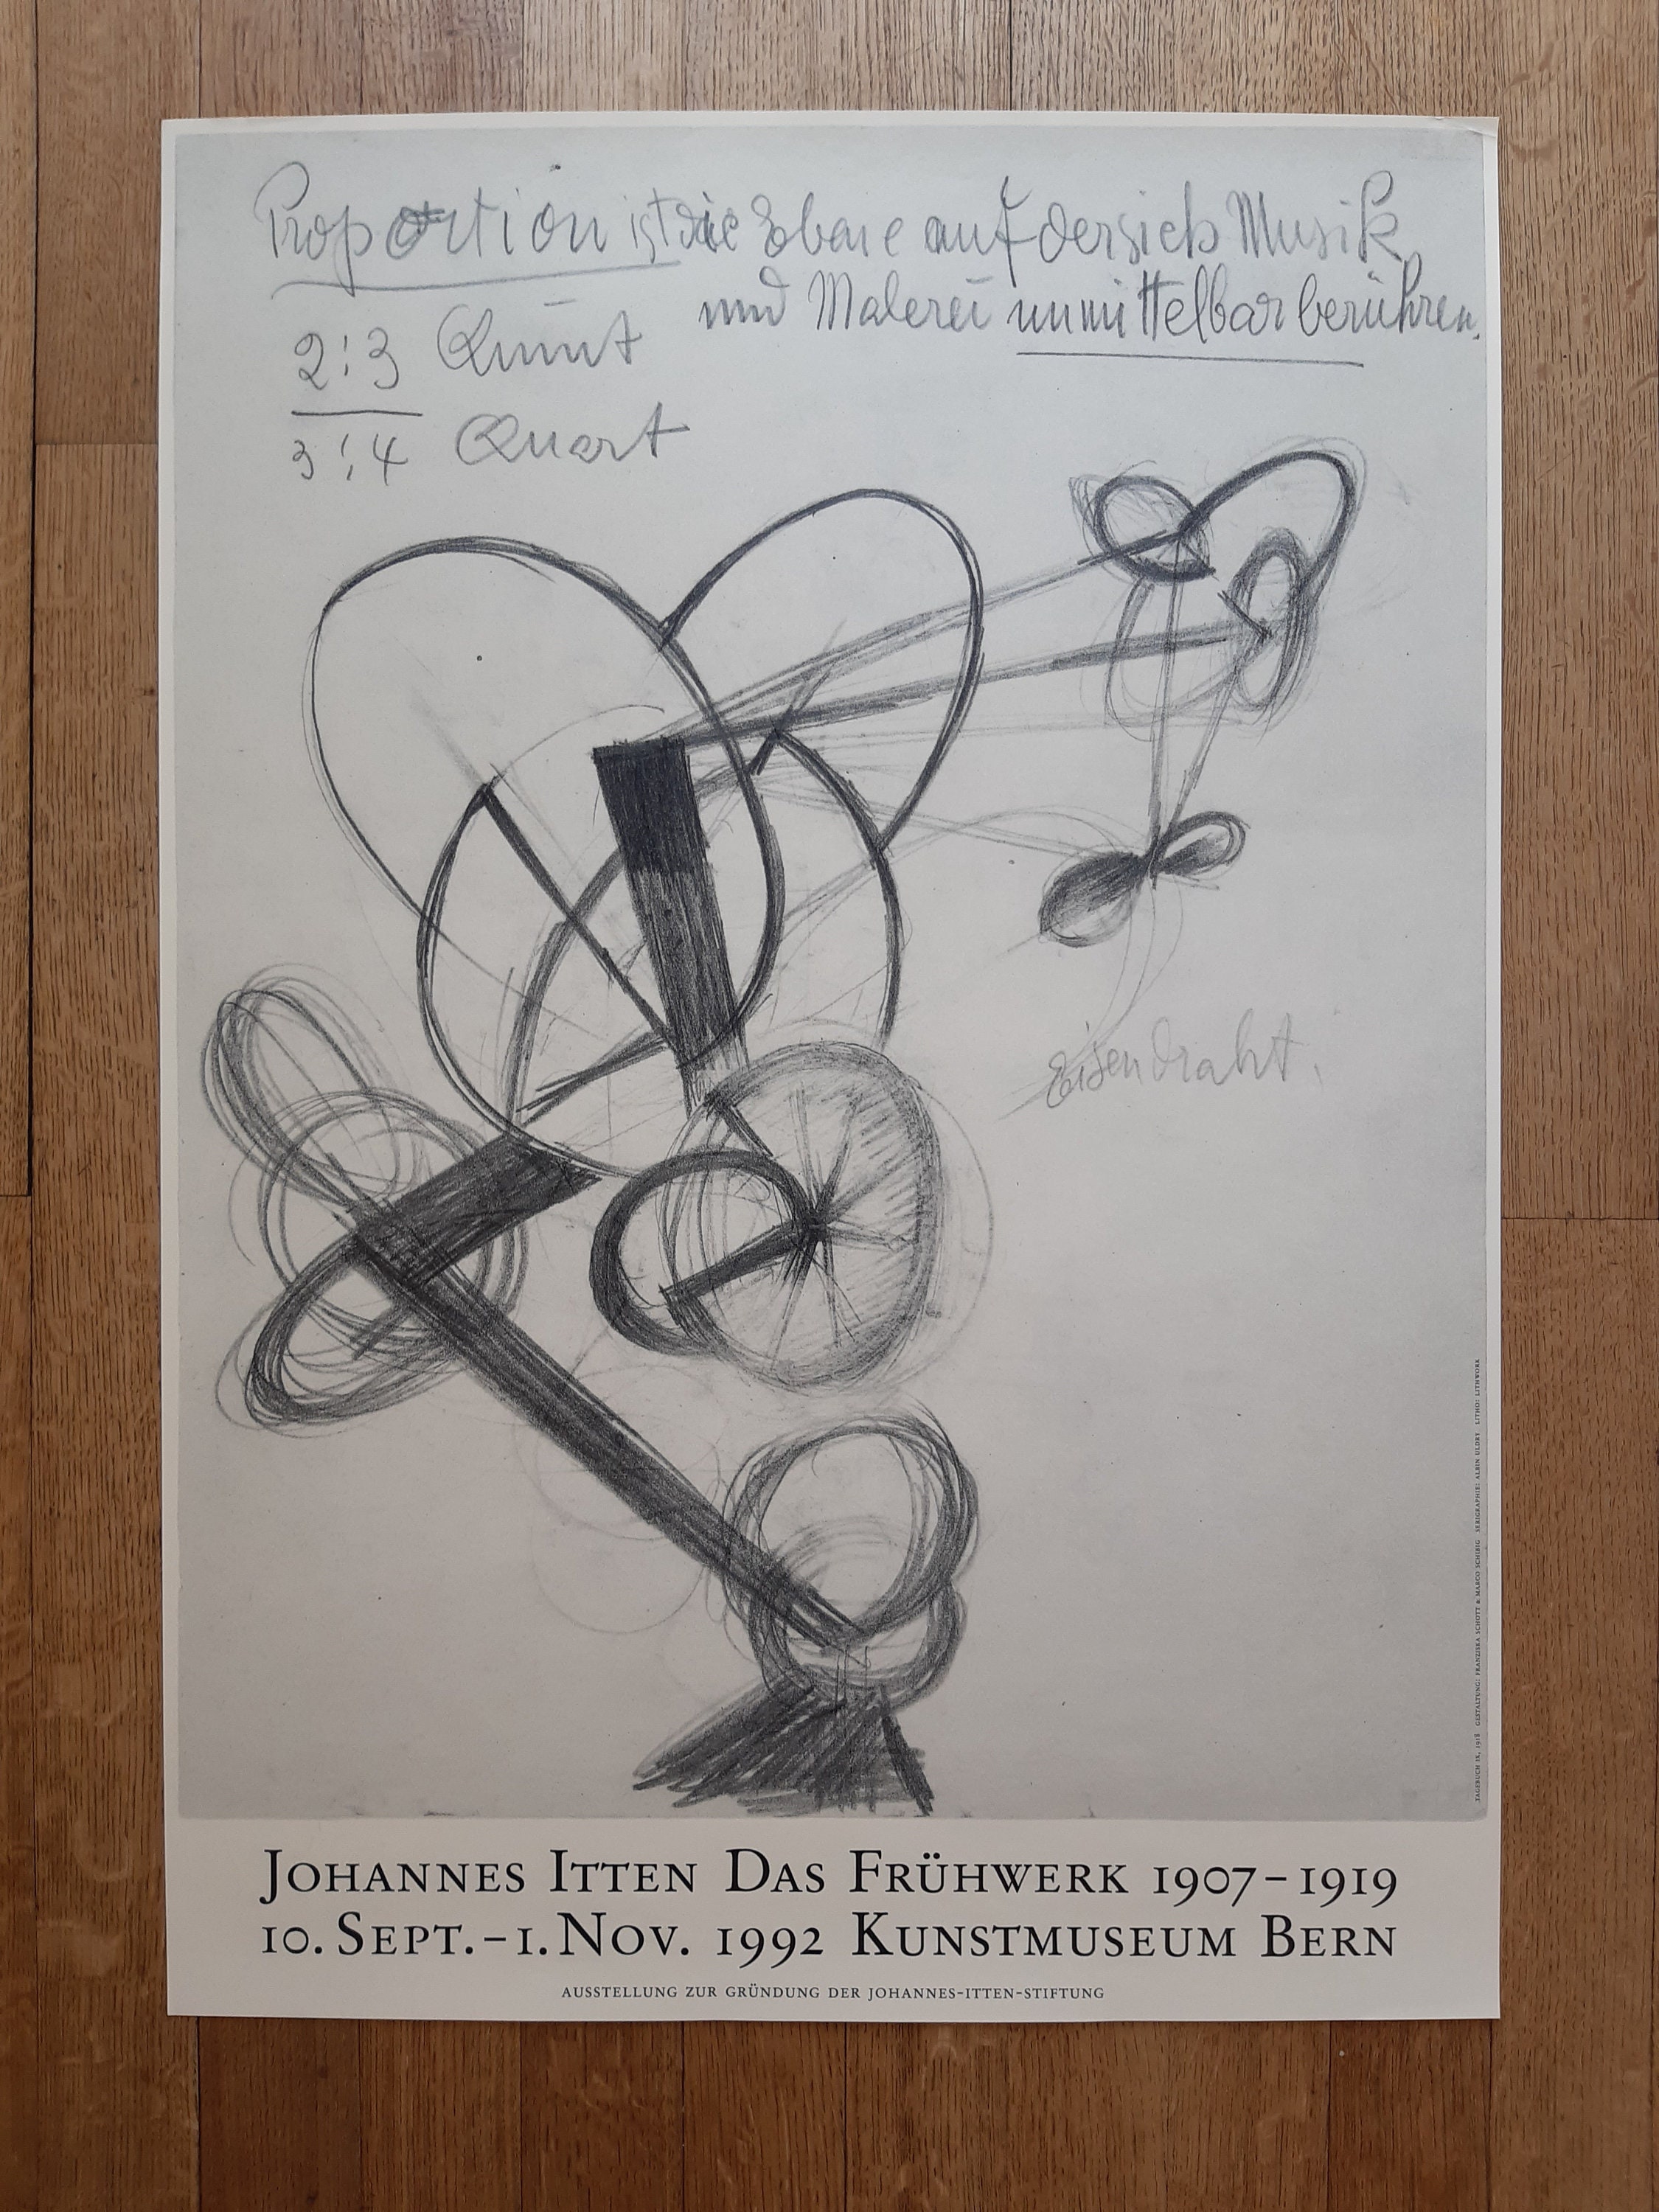 Proportion ist die Ebene auf der sich Musik
und Malerei unmittelbar berühren.
2:3 Quint
3:4 Quart
Eisendraht.
TAGEBUCH IX, 1918 GESTALTUNG: FRANZISKA SCHOTT & MARCO SCHIBIG SERIGRAPHIE: ALBIN ULDRY LITHO: LITHWORK
JOHANNES ITTEN DAS FRÜHWERK 1907–1919
10. SEPT.–1. NOV. 1992 KUNSTMUSEUM BERN
AUSSTELLUNG ZUR GRÜNDUNG DER JOHANNES-ITTEN-STIFTUNG